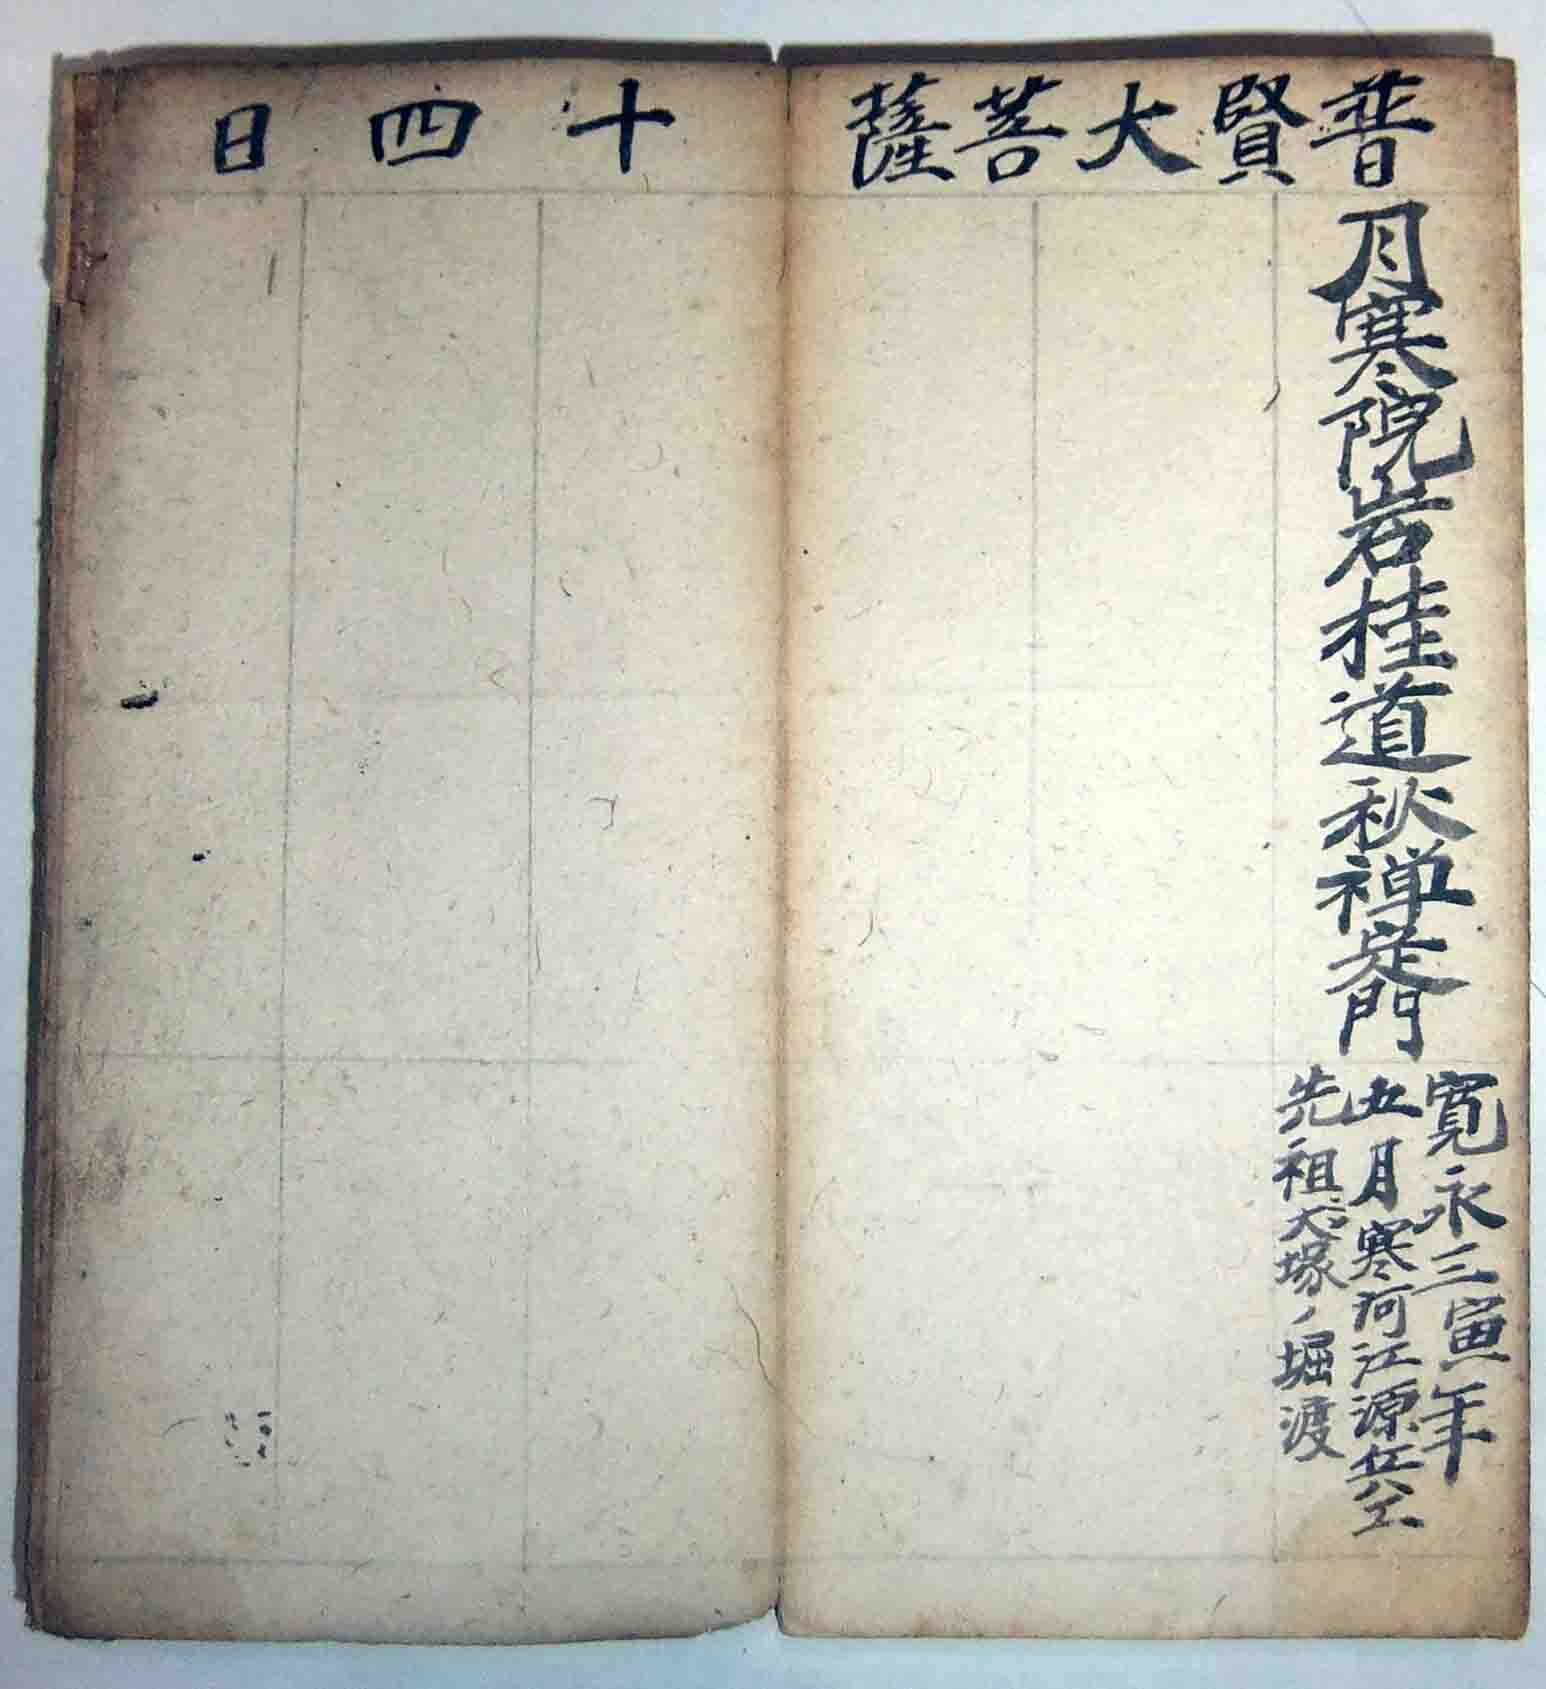 普賢大菩薩
十四日
月寒院岩桂道秋禅定門
寛永三寅年
五月寒河江源兵エ
先祖犬塚ノ堀渡